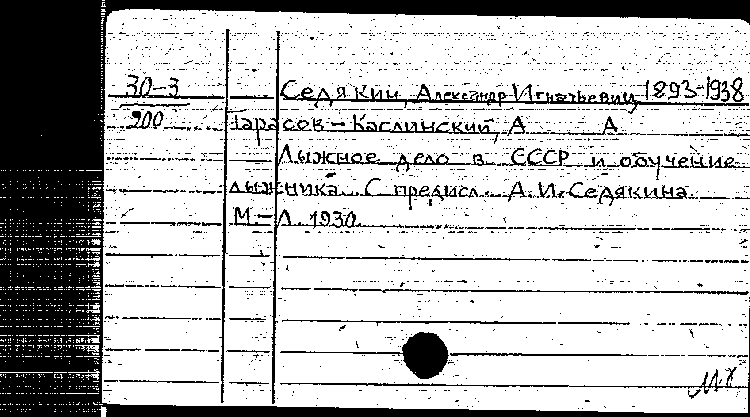 30-3 Седякин, Александр Игнатьевич 1893-1938
900 Тарасов-Каслинский, А А
Лыжное дело в СССР и обучение
лыжника. С предисл. А.И.Седякина.
М.-Л. 1930.